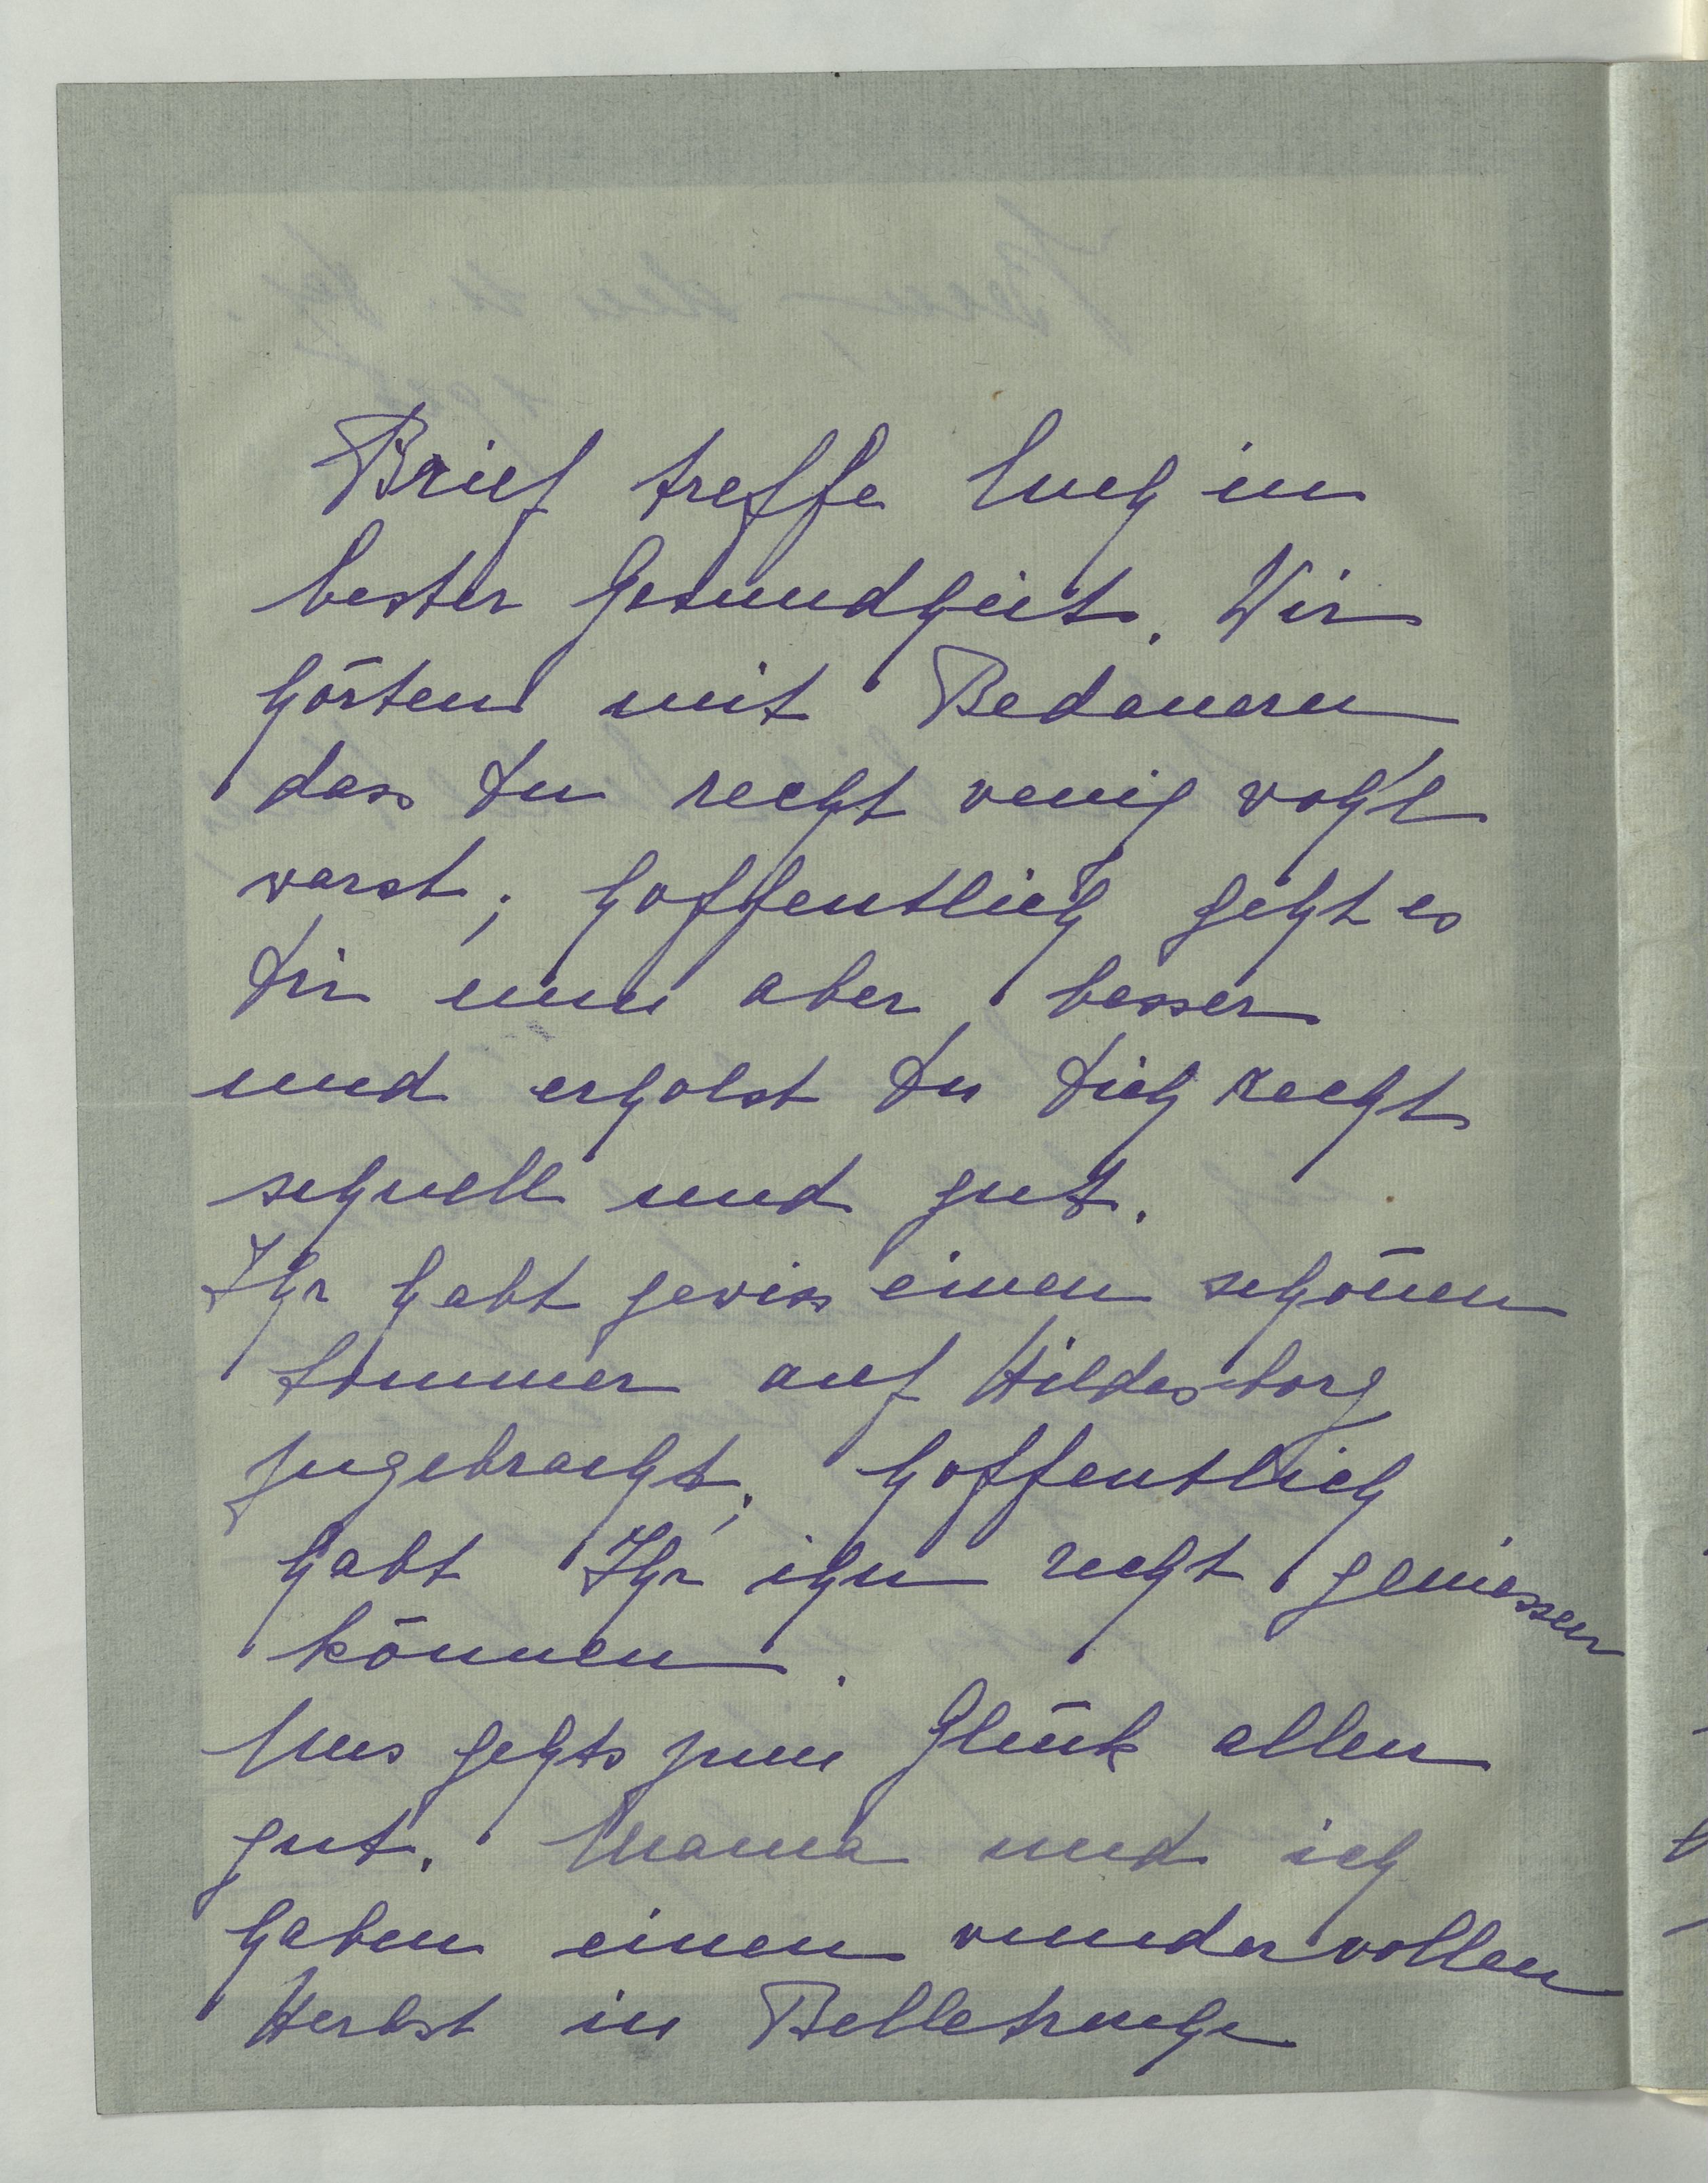 Brief treffe Euch in
bester Gesundheit. Wir
hörten mit Bedauern
dass Du recht wenig wohl
warst; hoffentlich geht es
Dir nun aber besser
und erholst Du Dich recht
schnell und gut.
Ihr habt gewiss einen schönen
Sommer auf Hildesborg
zugebracht; hoffentlich
habt Ihr ihn recht geniessen
können.
Uns gehts zum Glück allen
gut. Mama und ich
haben einen wundervollen
Herbst in